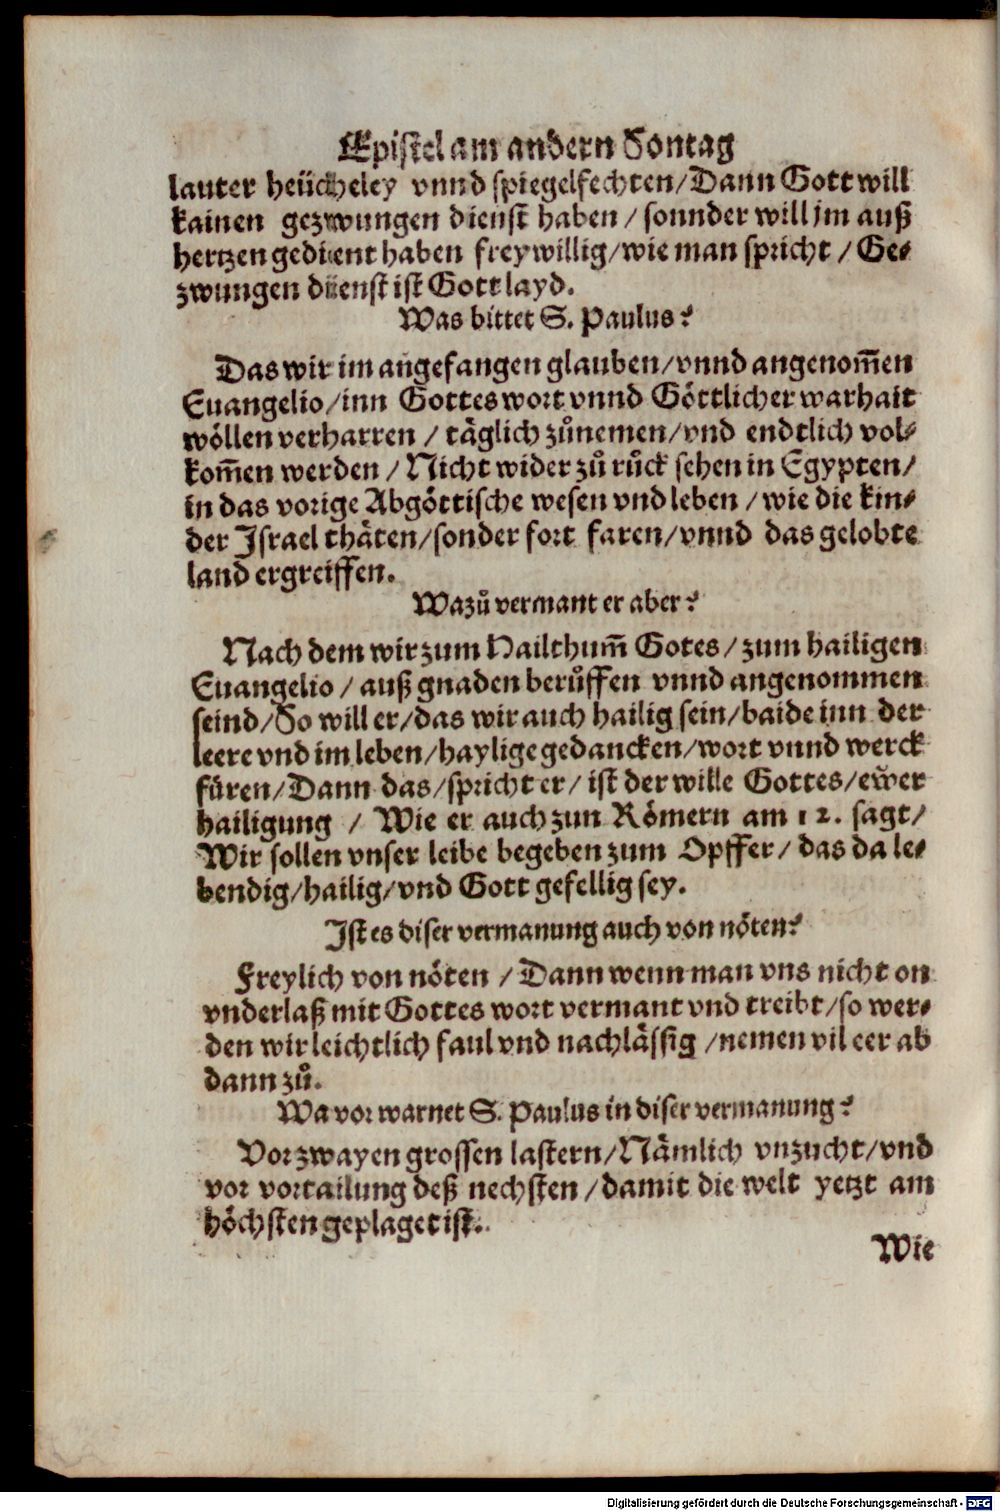 Epistel am andern Sontag
lauter heücheley vnnd spiegelfechten/Dann Gott will
kainen gezwungen dienst haben / sonnder will jm auß
hertzen gedient haben freywillig/wie man spricht / Ge⸗
zwungen dienst ist Gott layd.
Was bittet S. Paulus?
Das wir im angefangen glauben/vnnd angenom̄en
Euangelio/inn Gottes wort vnnd Göttlicher warhait
wöllen verharren / täglich zůnemen/vnd endtlich vol⸗
kom̄en werden / Nicht wider zů ruck sehen in Egypten/
in das vorige Abgöttische wesen vnd leben / wie die kin⸗
der Israel thäten/sonder fort faren/vnnd das gelobte
land ergreiffen.
Wazů vermant er aber?
Nach dem wir zum Hailthum̄ Gotes / zum hailigen
Euangelio / auß gnaden berůffen vnnd angenommen
seind/So will er/das wir auch hailig sein/baide inn der
leere vnd im leben/haylige gedancken/wort vnnd werck
füren/Dann das/spricht er/ ist der wille Gottes/ewer
hailigung / Wie er auch zun Römern am 12. sagt/
Wir sollen vnser leibe begeben zum Opffer/ das da le⸗
bendig/hailig/vnd Gott gefellig sey.
Ist es diser vermanung auch von nöten?
Freylich von nöten / Dann wenn man vns nicht on
vnderlaß mit Gottes wort vermant vnd treibt/so wer⸗
den wir leichtlich faul vnd nachlässig /nemen vil eer ab
dann zů.
Wa vor warnet S. Paulus in diser vermanung?
Vor zwayen grossen lastern/Nämlich vnzucht/vnd
vor vortailung deß nechsten / damit die welt yetzt am
höchsten geplaget ist.
Wie
Digitalisierung gefördert durch die Deutsche Forschungsgemeinschaft - DFG